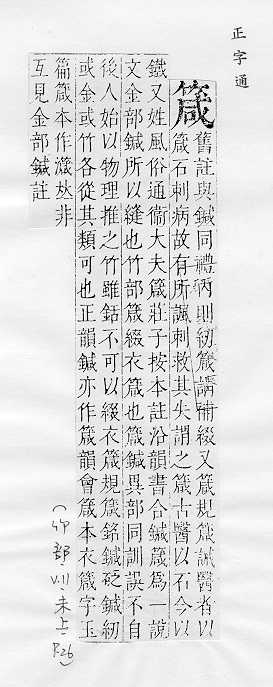 正字通
箴
舊註與鍼同禮內則紉箴請補綴又箴規箴誡醫者以
箴石刺病故有所諷刺救其失謂之箴古醫以石今以
鐵又姓風俗通衞大夫箴莊子按本註沿韻書合鍼箴爲一說
文金部鍼所以縫也竹部箴綴衣箴也箴鍼異部同訓誤不自
後人始以物理推之竹雖銛不可以綴衣箴規箴銘鍼砭鍼紉
或金或竹各從其類可也正韻鍼亦作箴韻會箴本衣箴字玉
篇箴本作𥴧𠀤非
互見金部鍼註
(竹部,V.11,未上,P.26)